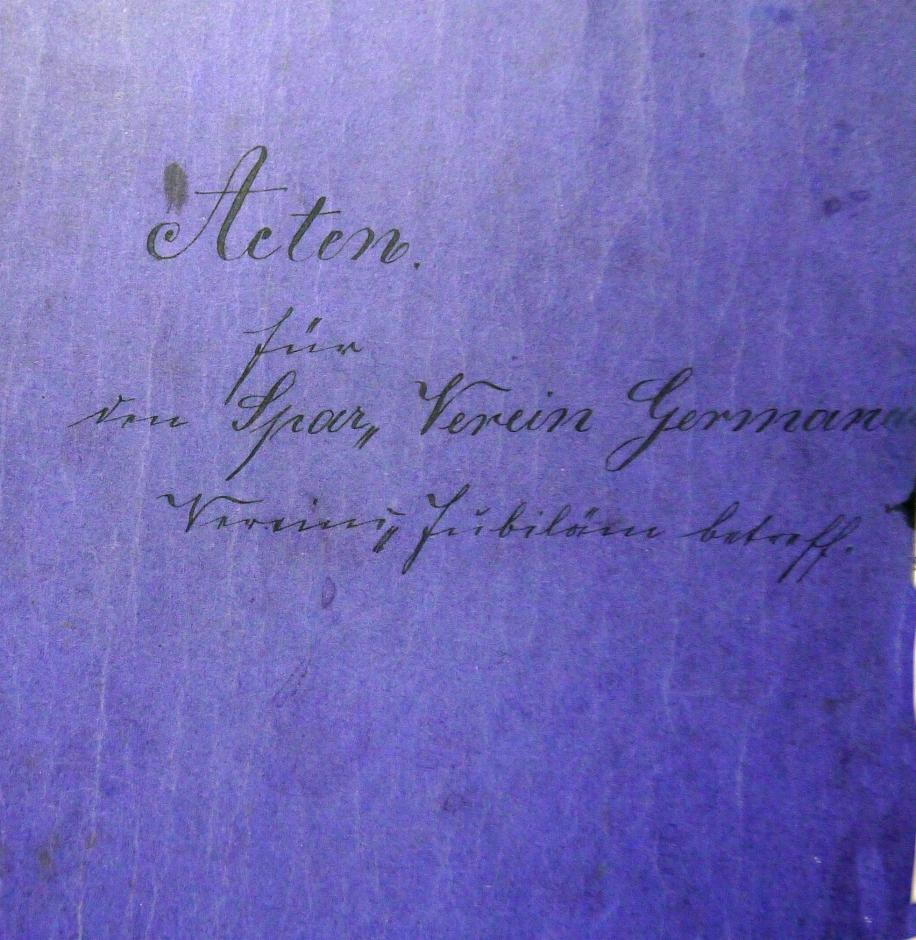 Acten.
für
den Spar„ Verein Germania
Vereins„ Jubiläum betreff.